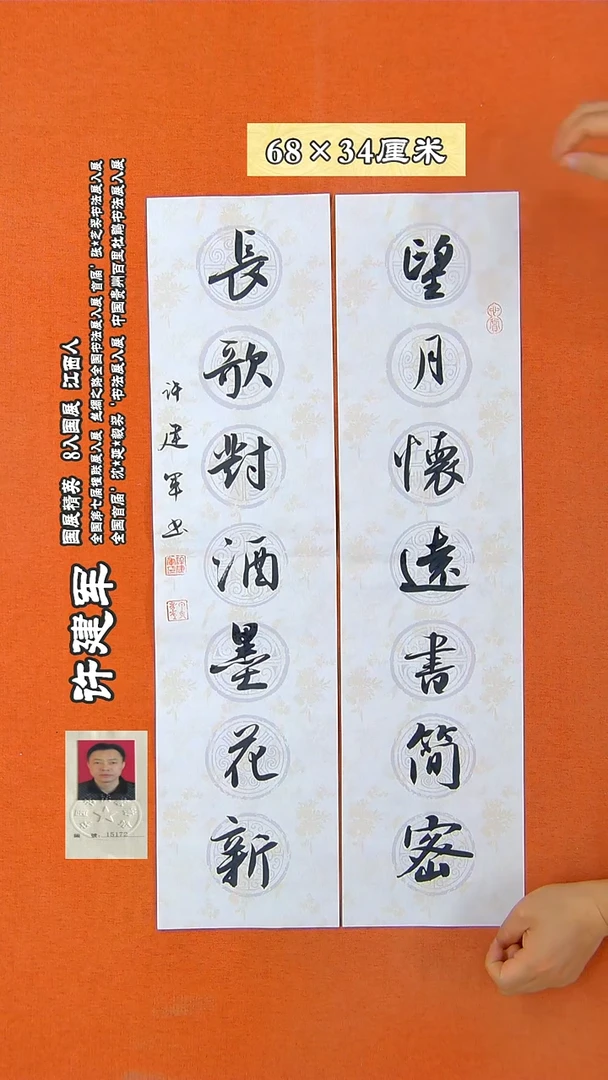 68×34厘米
望月懷遠書簡密
長歌對酒墨花新
许建军书
许建军
国展精英 8入国展 江西人
全国第七届楹联展入展 丝绸之路全国书法展入展 首届'张★芝奖书法展入展
全国首届'沈★延★毅奖'书法展入展 中国贵州百里杜鹃书法展入展
15172